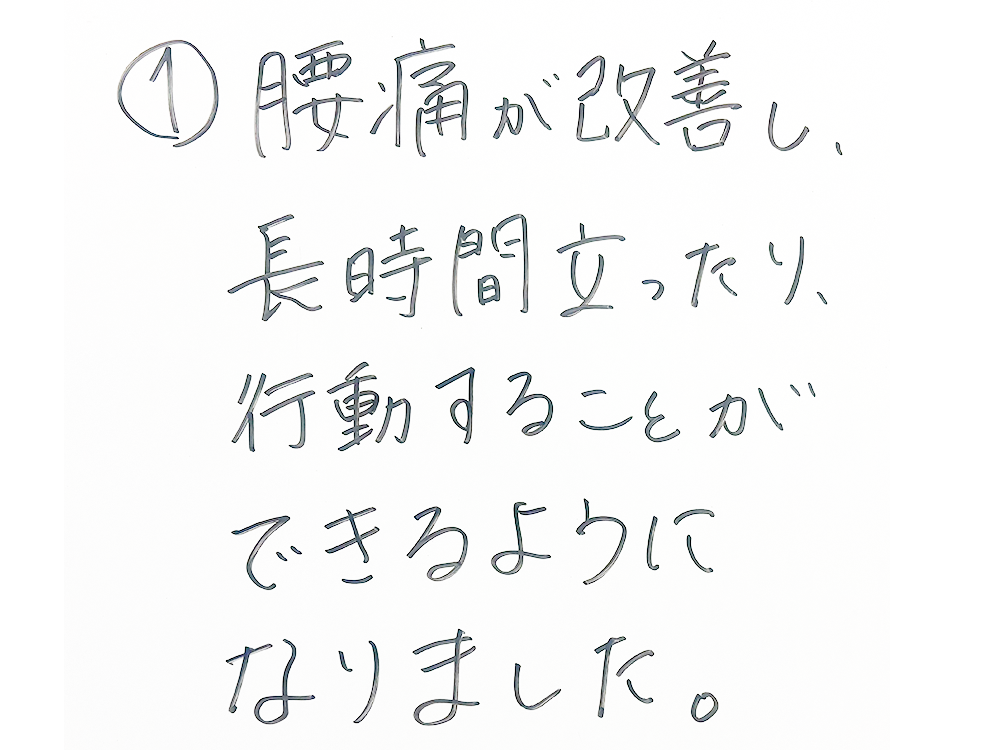 ① 腰痛が改善し、
長時間立ったり、
行動することが
できるように
なりました。